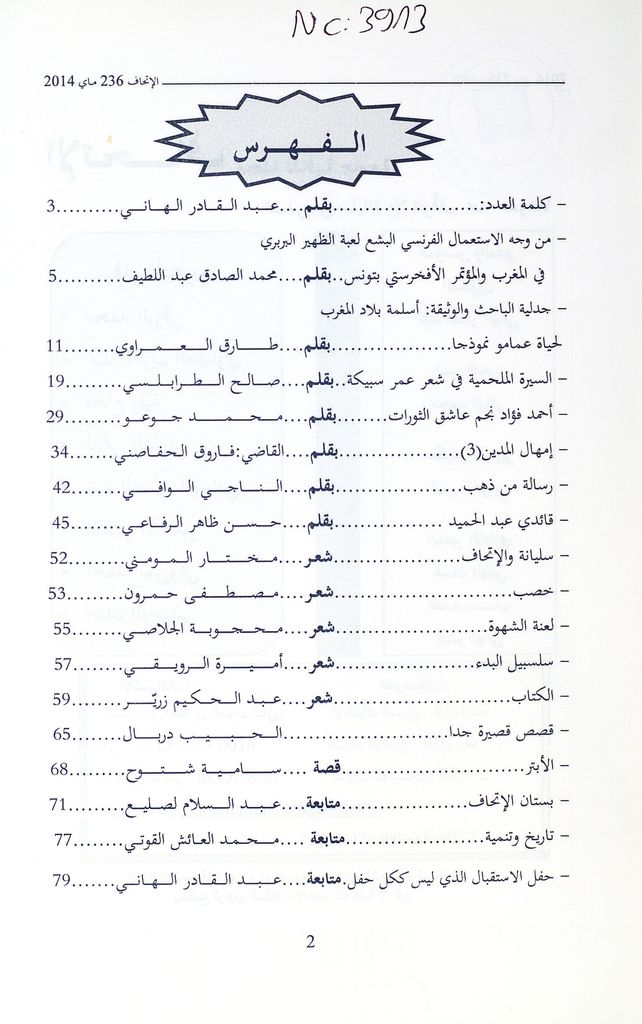 NC: 3913
الإتحاف 236 ماي 2014
الـفـهـرس
- كلمة العدد:........................بقلم....عـبـد الـقـادر الـهـانـي..........3
- من وجه الاستعمال الفرنسي البشع لعبة الظهير البربري
في المغرب والمؤتمر الأفخرستي بتونس..بقلم....محمد الصادق عبد اللطيف.........5
- جدلية الباحث والوثيقة: أسلمة بلاد المغرب
لحياة عمامو نموذجا......................بقلم....طـارق الـعـمـراوي........11
- السيرة الملحمية في شعر عمر سبيكة..بقلم....صـالـح الـطـرابـلـسـي........19
- أحمد فؤاد نجم عاشق الثورات........بقلم....مـحـمـد جـوعـو........29
- إمهال المدين(3)......................بقلم....القاضي:فـاروق الـحـفـاصـنـي.......34
- رسالة من ذهب......................بقلم....الـنـاجـي الـوافـي........42
- قائدي عبد الحميد ................بقلم....حـسـن ظاهر الـرفـاعـي........45
- سليانة والإتحاف......................شعر....مـخـتـار الـمـومـنـي........52
- خصب..............................شعر....مـصـطـفـى حـمـرون........53
- لعنة الشهوة........................شعر....مـحـجـوبـة الجلاصي........55
- سلسبيل البدء......................شعر....أمـيـرة الـرويـقـي........57
- الكتاب............................شعر....عـبـد الـحـكـيـم زريّـر........59
- قصص قصيرة جدا........................الـحـبـيـب دربـال........65
- الأبتر..........................قصة ....سـامـيـة شـتـوح........68
- بستان الإتحاف....................متابعة....عـبـد الـسـلام لصليـع........71
- تاريخ وتنمية....................متابعة ....مـحـمـد العائش القوتي........77
- حفل الاستقبال الذي ليس ككل حفل.متابعة....عـبـد القـادر الـهـانـي........79
2